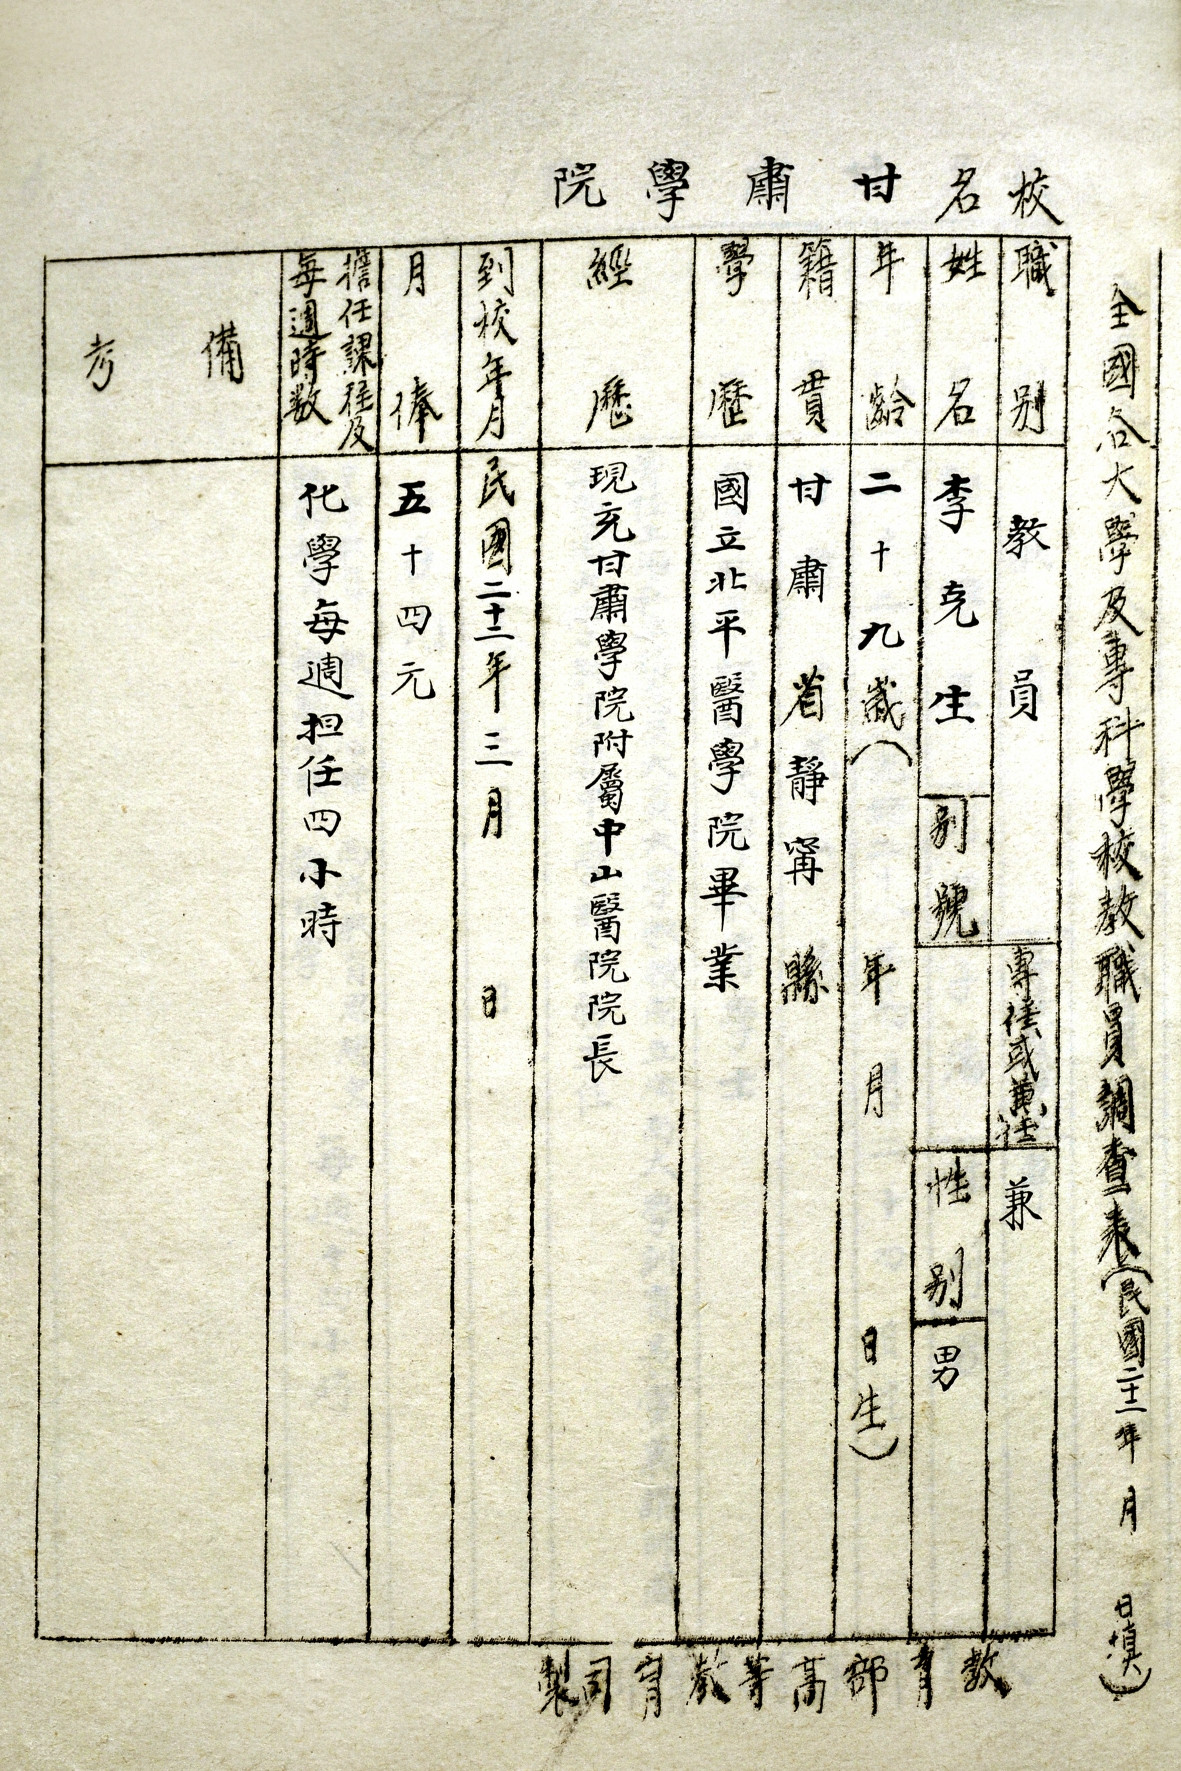 全國各大學及專科學校教職員調查表(民國二十二年 月 日填)
校名 甘肅學院
職別 教員 專任或兼任 兼
姓名 李克生 別號 性別 男
年齡 二十九歲( 年 月 日生)
籍貫 甘肅省靜甯縣
學歷 國立北平醫學院畢業
經歷 現充甘肅學院附屬中山醫院院長
到校年月 民國二十二年三月 日
月俸 五十四元
擔任課程及
每週時数
化學每週担任四小時
備考
教育部高等教育司製